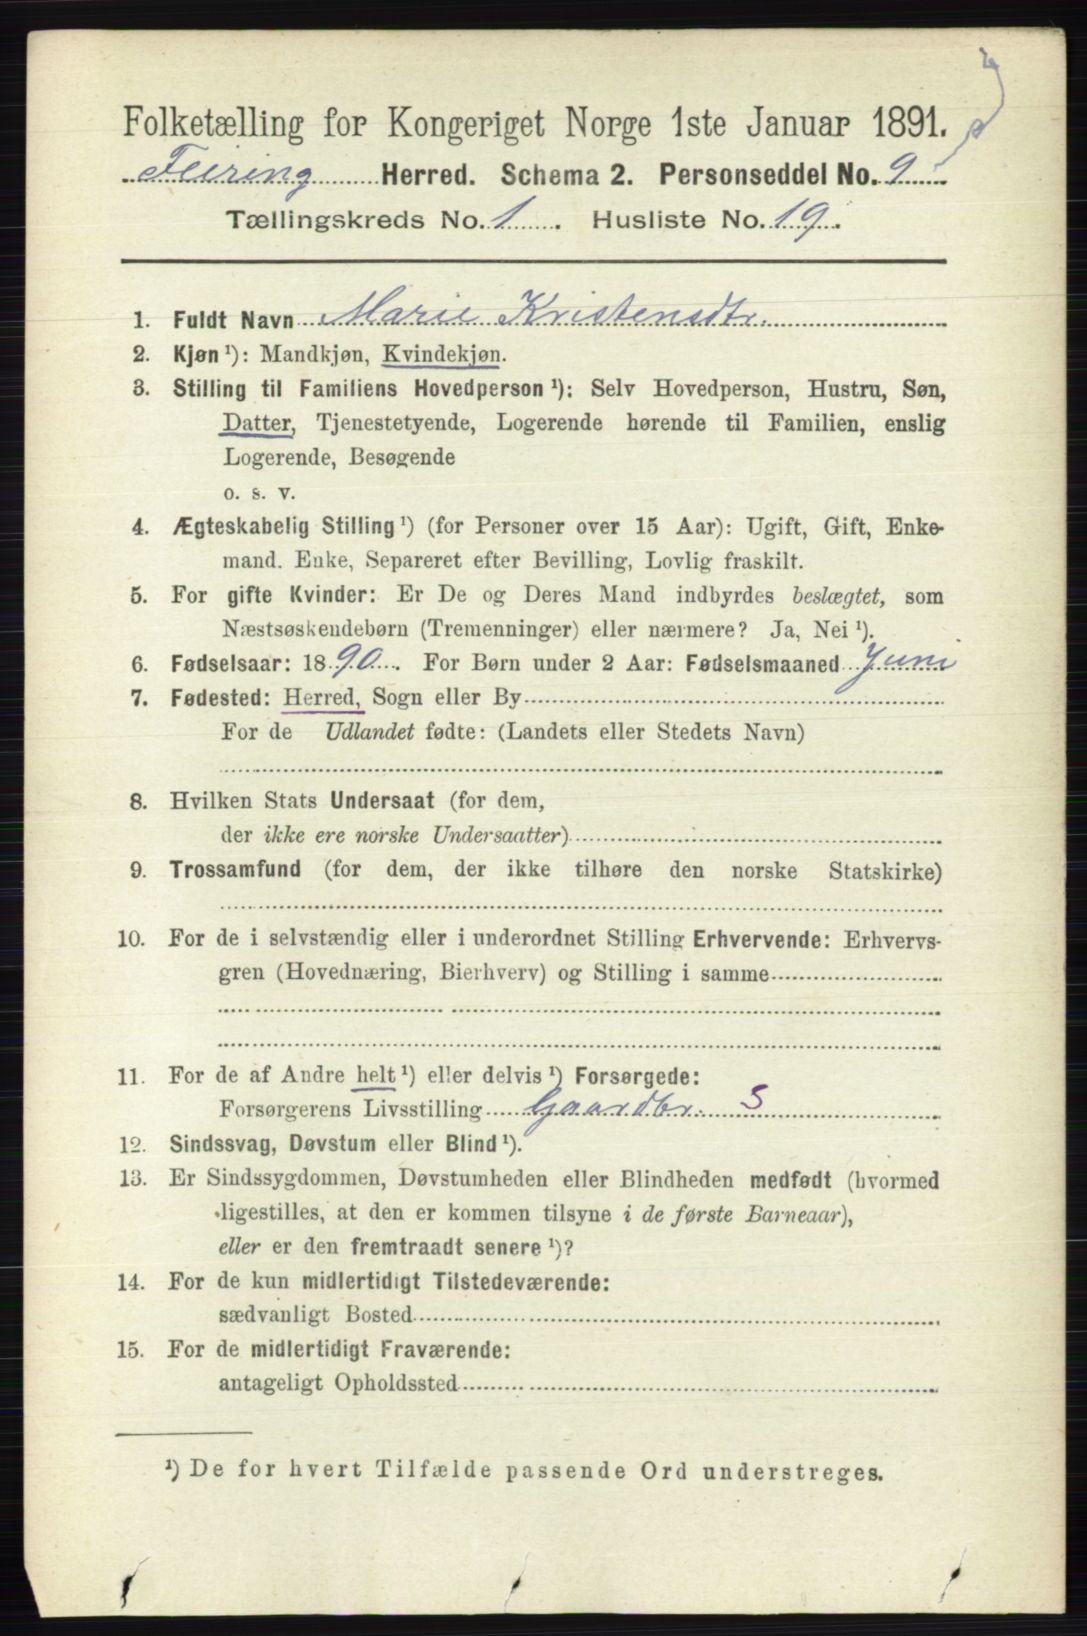 Folketælling for Kongeriget Norge 1ste Januar 1891.
Feiring Herred. Schema 2. Personseddel No. 9
Tællingskreds No. 1. Husliste No. 19.
1. Fuldt Navn Marie Kristensdtr.
2. Kjøn ¹): Mandkjøn, Kvindekjøn.
3. Stilling til Familiens Hovedperson ¹): Selv Hovedperson, Hustru, Søn,
Datter, Tjenestetyende, Logerende hørende til Familien, enslig
Logerende, Besøgende
o. s. v.
4. Ægteskabelig Stilling ¹) (for Personer over 15 Aar): Ugift, Gift, Enke-
mand. Enke, Separeret efter Bevilling, Lovlig fraskilt.
5. For gifte Kvinder: Er De og Deres Mand indbyrdes beslægtet, som
Næstsøskendebørn (Tremenninger) eller nærmere? Ja, Nei ¹).
6. Fødselsaar: 1890. For Børn under 2 Aar: Fødselsmaaned Juni
7. Fødested: Herred, Sogn eller By
For de Udlandet fødte: (Landets eller Stedets Navn)
8. Hvilken Stats Undersaat (for dem,
der ikke ere norske Undersaatter)
9. Trossamfund (for dem, der ikke tilhøre den norske Statskirke)
10. For de i selvstændig eller i underordnet Stilling Erhvervende: Erhvervs-
gren (Hovednæring, Bierhverv) og Stilling i samme
11. For de af Andre helt ¹) eller delvis ¹) Forsørgede:
Forsørgerens Livsstilling Gaardbr. S
12. Sindssvag, Døvstum eller Blind ¹).
13. Er Sindssygdommen, Døvstumheden eller Blindheden medfødt (hvormed
ligestilles, at den er kommen tilsyne i de første Barneaar),
eller er den fremtraadt senere ¹)?
14. For de kun midlertidigt Tilstedeværende:
sædvanligt Bosted
15. For de midlertidigt Fraværende:
antageligt Opholdssted
¹) De for hvert Tilfælde passende Ord understreges.